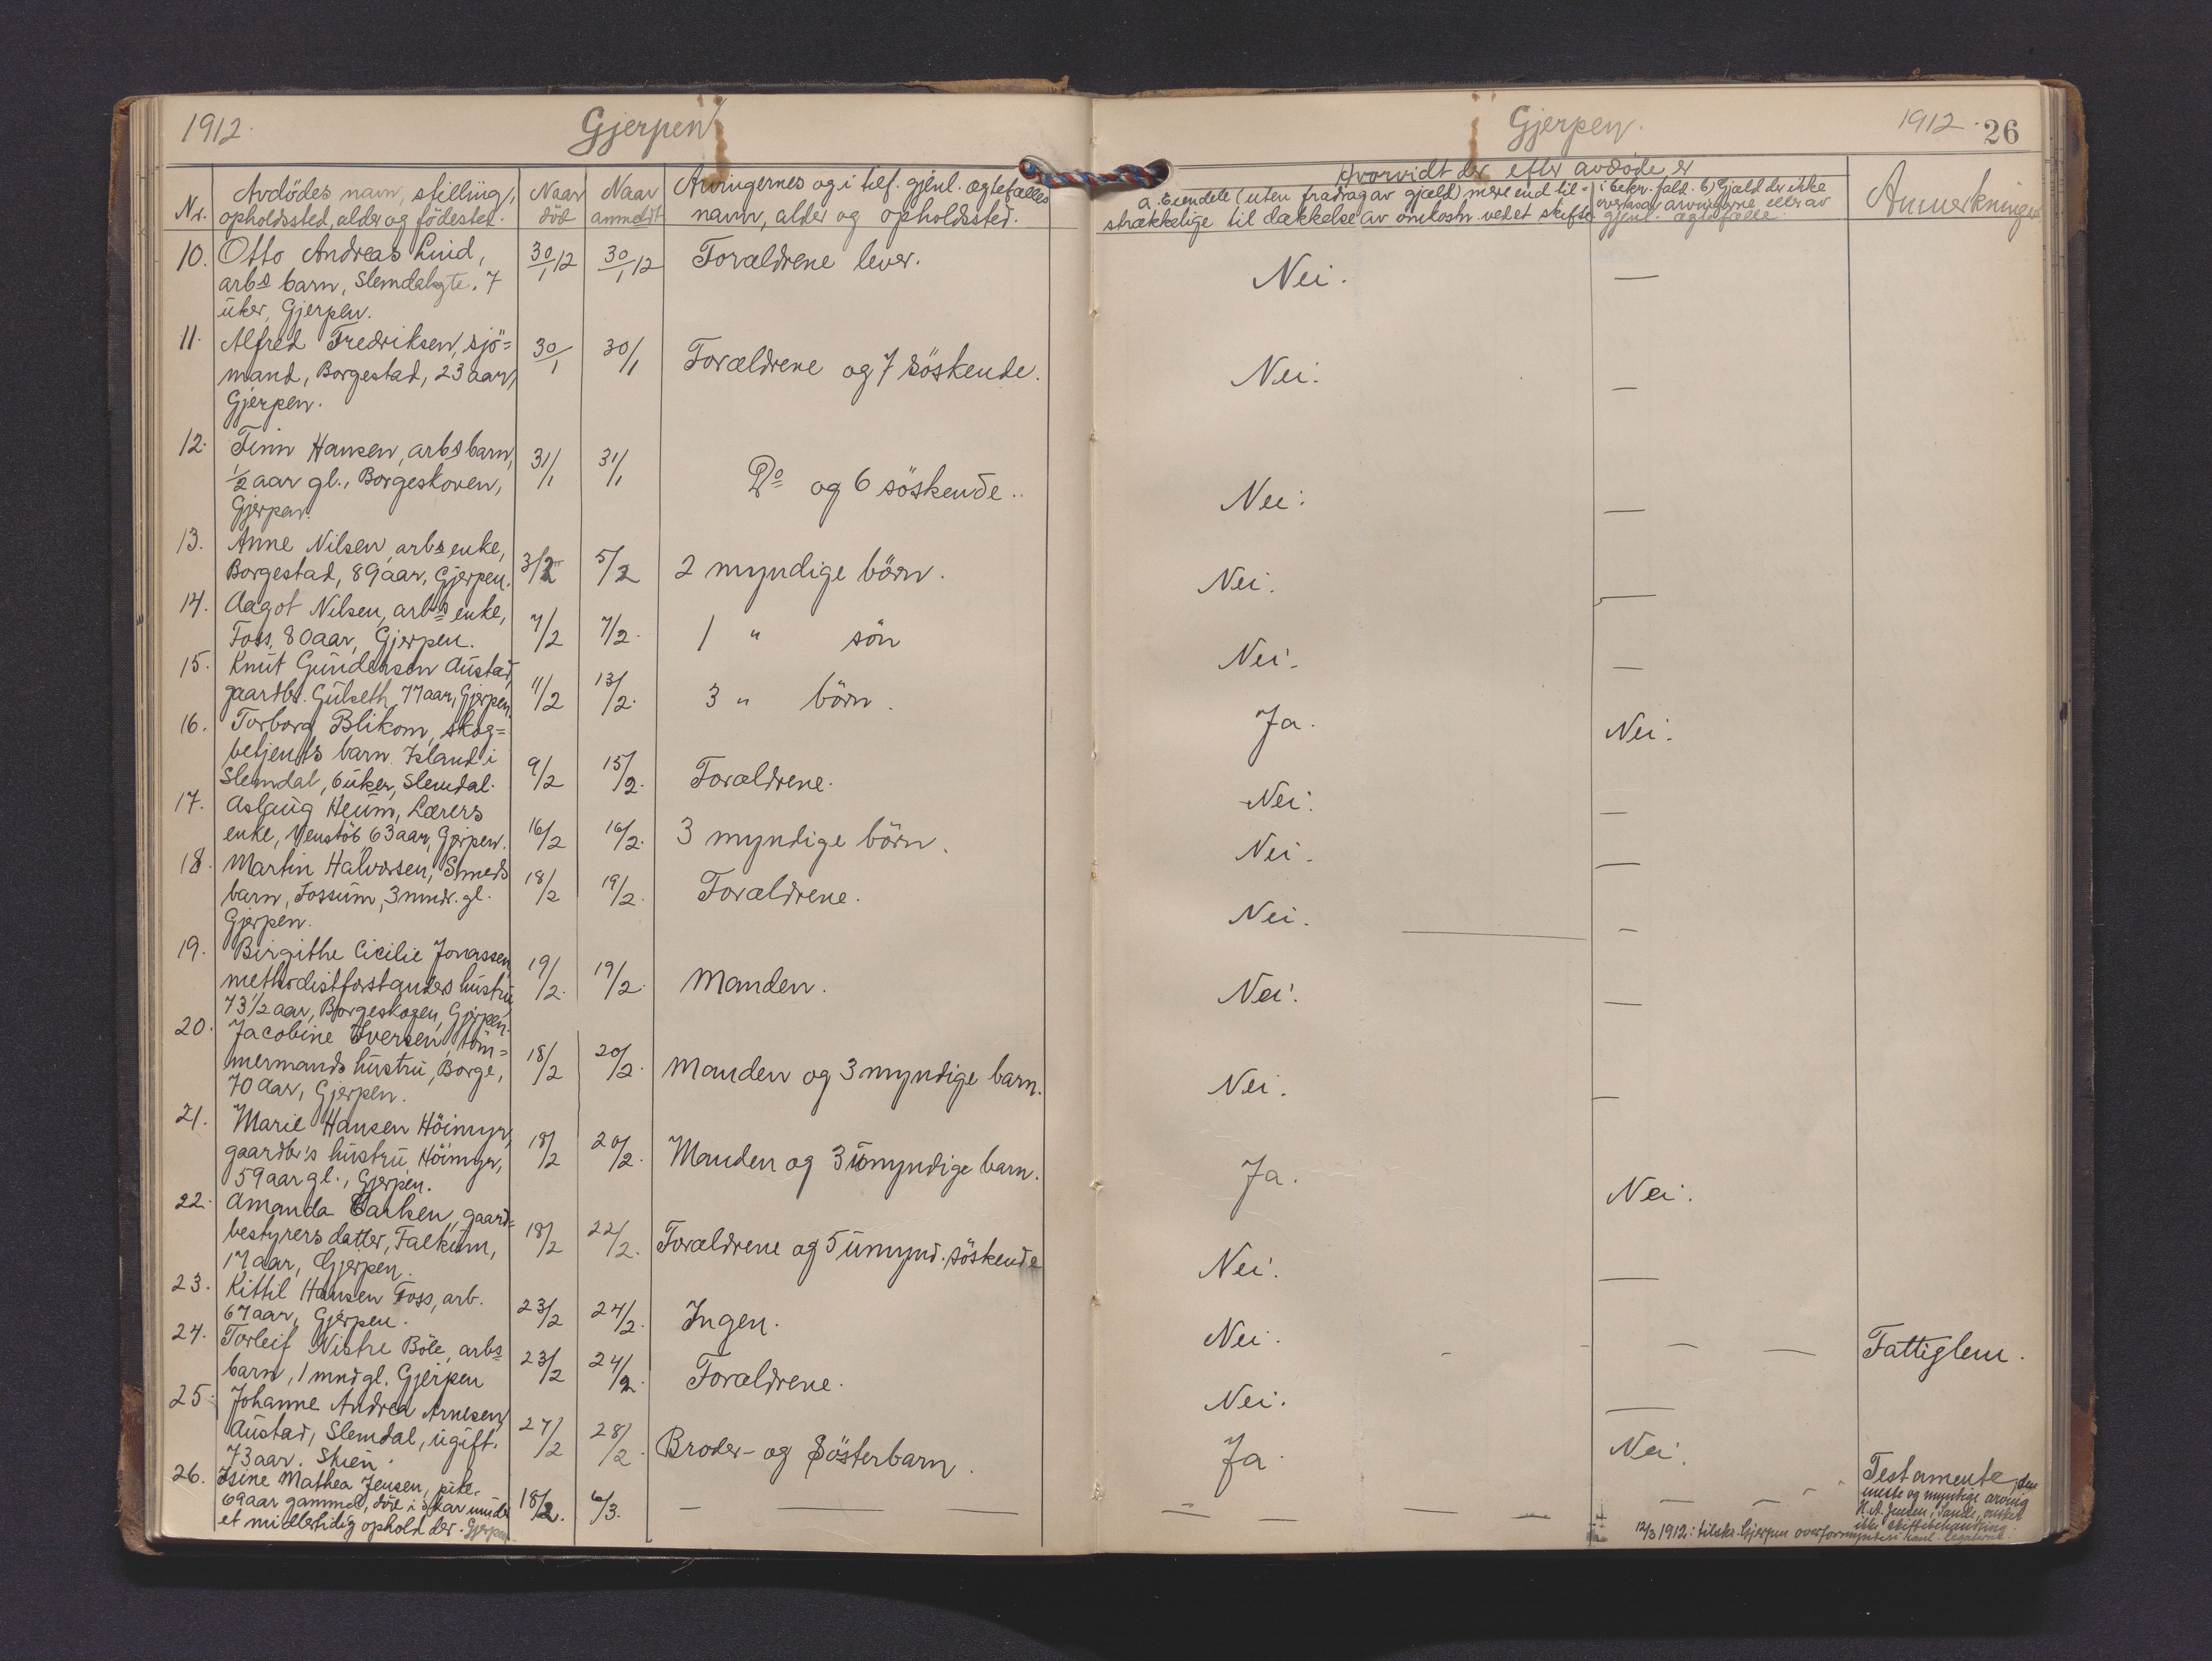 1912.
Gjerpen
Nr.
Avdödes navn, stilling,
opholdssted, alder og födested.
Naar
död
Naar
anmeldt
Arvingernes og i tilf. gjenl. ægtefælles
navn, alder og opholdssted.
10.
Otto Andreas Lind,
arbs barn, Slemdalsgte. 7
uker, Gjerpen.
30/1 12
30/1 12
Forældrene lever.
11.
Alfred Fredriksen, sjö=
mand, Borgestad, 23 aar,
Gjerpen.
30/1
30/1
Forældrene og 7 söskende.
12.
Finn Hansen, arbs barn,
1/2 aar gl., Borgeskoven,
Gjerpen.
31/1
31/1
Do og 6 söskende.
13.
Anne Nilsen, arbs enke,
Borgestad, 89 aar, Gjerpen.
3/2
5/2
2 myndige börn.
14.
Aagot Nilsen, arbs enke,
Foss, 80 aar, Gjerpen.
7/2
7/2.
1 " sön
15.
Knut Gunderson Austad,
gaardbr. Gulseth, 77 aar, Gjerpen.
11/2
13/2.
3 " börn.
16.
Torborg Blikom, skog=
betjents barn. Island i
Slemdal, 6 uker, Slemdal.
9/2
15/2.
Forældrene.
17.
Aslaug Heum, Lærers
enke, Venstöb, 63 aar, Gjerpen.
16/2
16/2.
3 myndige börn.
18.
Martin Halvorsen, Smeds
barn, Fossum, 3 mndr. gl.
Gjerpen.
18/2
19/2.
Forældrene.
19.
Birgithe Cicilie Jonassen,
methodistforstanders hustru,
73 1/2 aar, Borgeskogen, Gjerpen.
19/2.
19/2.
Manden.
20.
Jacobine Iversen, töm=
mermands hustru, Borge,
70 aar, Gjerpen.
18/2
20/2.
Manden og 3 myndige barn.
21.
Marie Hansen Höimyr,
gaardbr's hustru, Höimyr,
59 aar gl., Gjerpen.
18/2
20/2.
Manden og 3 umyndige barn.
22.
Amanda Carlsen, gaard=
bestyrers datter, Falkum,
17 aar, Gjerpen.
18/2
22/2.
Forældrene og 5 umynd. söskende
23.
Kittil Hansen Foss, arb.
67 aar, Gjerpen.
23/2
24/2.
Ingen.
24.
Torleif Nistre Böle, arbs
barn, 1 mnd gl. Gjerpen
23/2
24/2.
Forældrene.
25.
Johanne Andrea Arnesen,
Austad, Slemdal, ugift.
73 aar. Skien.
27/2
28/2.
Broder- og Sösterbarn.
26.
Isine Mathea Jensen, pike.
69 aar gammel, död i Skar under
et midlertidig ophold der. Gjerpen
18/2.
6/3.
Gjerpen.
1912.
26
Hvorvidt der efter avdöde er
a. Eiendele (uten fradrag av gjæld) mere end til=
strækkelige til dækkelse av omkostn. ved et skifte
i bekr. fald. b) Gjæld der ikke
overtas av arvingerne eller av
gjenl. ægtefælle.
Anmerkninger
Nei. —
Nei. —
Nei. —
Nei. —
Nei. —
Ja. Nei.
Nei. —
Nei. —
Nei. —
Nei. —
Nei. —
Ja. Nei.
Nei. —
Nei. - - — — Fattiglem.
Nei. —
Ja. Nei.
Testamente, den
eneste og myndige arving
H. A. Jensen, Sande, önsket
ikke skiftebehandling.
12/3 1912: tilskr. Gjerpen overformynderi